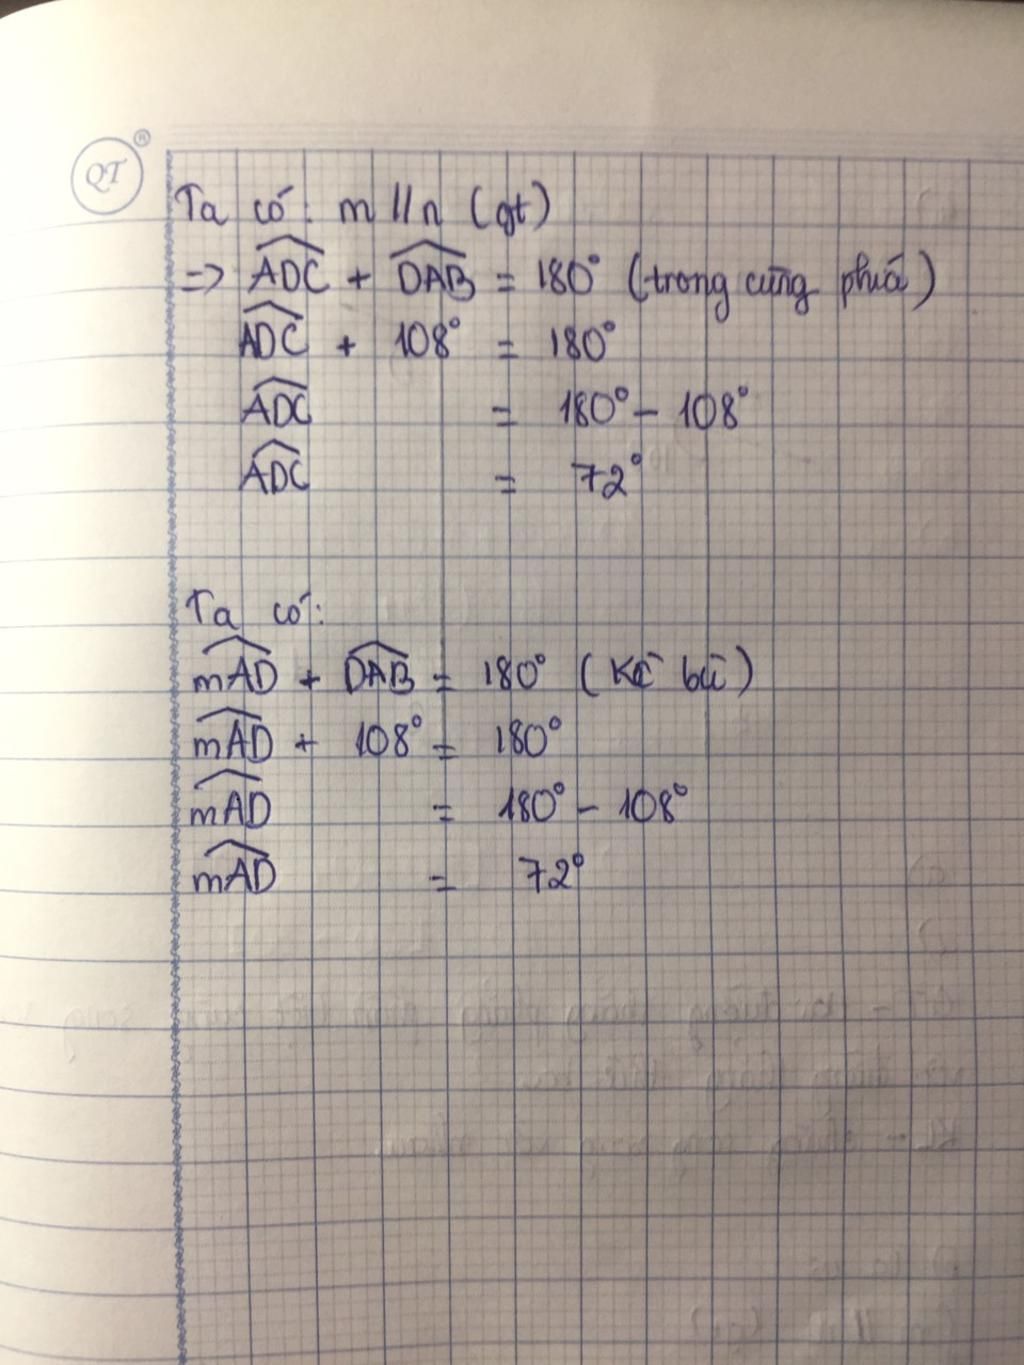 QT ®
Ta có: m // n (gt)
=> ADC + DAB = 180° (trong cùng phía)
ADC + 108° = 180°
ADC = 180° - 108°
ADC = 72°
Ta có:
mAD + DAB = 180° (Kề bù)
mAD + 108° = 180°
mAD = 180° - 108°
mAD = 72°